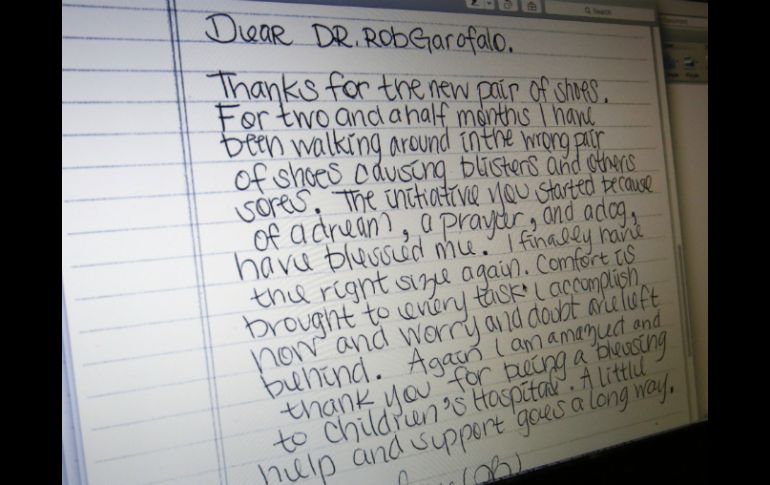 Search
Dear DR. Rob Garofalo.
Thanks for the new pair of shoes.
For two and a half months I have
been walking around in the wrong pair
of shoes causing blisters and others
sores. The initiative you started because
of a dream, a prayer, and a dog,
have blessied me. I finally have
the right size again. Comfort is
brought to every task I accomplish
now and worry and doubt are left
behind. Again I am amazed and
thank you for being a blessing
to Children's Hospital. A little
help and support goes a long way.